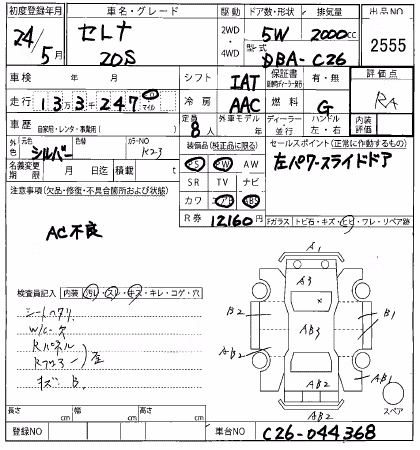 初度登録年月 車名・グレード 駆動 ドア数・形状 排気量 出品NO
24年 5月 セレナ 20S 2WD 4WD 5W 2000cc 2555
型式 DBA-C26
車検 年 月 シフト IAT 保証書 有・無 評価点
走行 13万3千247 マイル 冷房 AAC 燃料 G RA
車歴 自家用・レンタ・事業用( ) 定員 8人 外車モデル ディーラー 並行 ハンドル 左・右 内装評価
外色 元色 シルバー 色替 カラーNO K23 装備品(純正品に限る) セールスポイント(正常に作動するもの)
PS PW AW 左パワースライドドア
名義変更期限 月 日迄 積載 t SR TV ナビ
注意事項(欠品・修復・不具合箇所および状態) カワ エアB ABS
R券 12160円
AC不良 Fガラス トビ石・キズ・ヒビ・ワレ・リペア跡
A1
A3
検査員記入 内装 汚レ・スレ・キズ・キレ・コゲ・穴
B2 B1
シートヘタリ AB3
W/C欠 AB2
Rパネル
Rフロアー 歪
キズ B. AB2 AB1
AB2 スペア
長さ cm 幅 cm 高さ cm
登録NO 車台NO C26-044368